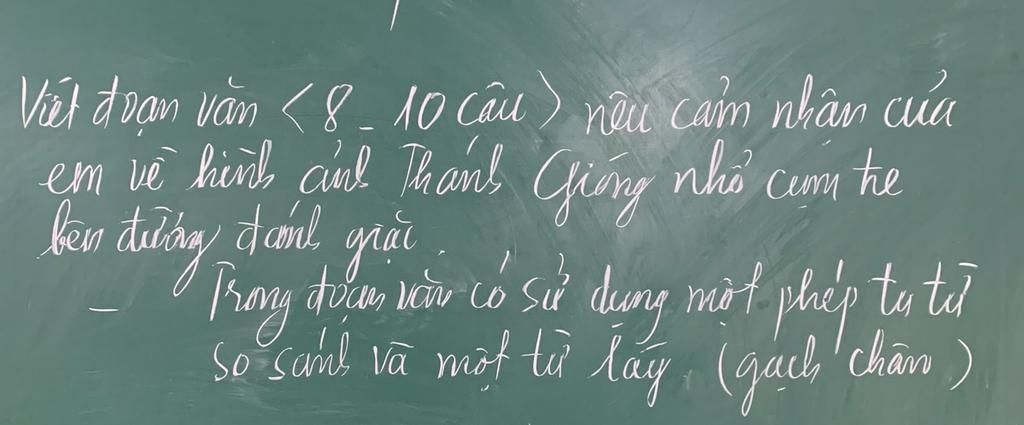 Viết đoạn văn < 8 - 10 câu > nêu cảm nhận của
em về hình ảnh Thánh Gióng nhổ cụm tre
bên đường đánh giặc.
- Trong đoạn văn có sử dụng một phép tu từ
so sánh và một từ láy (gạch chân)